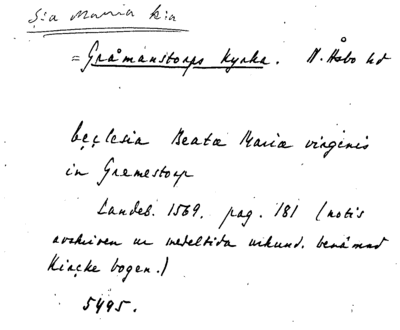 S:a Maria k:a
= Gråmanstorps kyrka. N. Åsbo hd
beçlesia Beatæ Mariæ virginis
in Gremestorp
Landeb. 1569. pag. 181 (notis
avskriven ur medeltida urkund. benämnd
Kirçke bogen.)
5495.